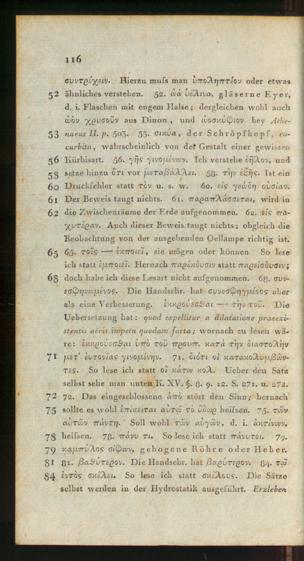 116
συντρέχειν. Hierzu muſs man ὑποληπτέον oder etwas
52 ähnliches verstehen. 52. ὠὰ ὑέλινα, gläserne Eyer,
d. i. Flaschen mit engem Halse; dergleichen wohl auch
ὠὸν χρυσοῦν aus Dinon, und ὠοσκύφιον bey Athe-
53 naeus II. p. 503. 53. σικύα, der Schröpfkopf, cu-
curbita, wahrscheinlich von der Gestalt einer gewissen
56 Kürbisart. 56. γῆς γινομένην. Ich verstehe ἐξῆλον, und
58 setze hinzu ὅτι vor μεταβάλλει. 58. τὴν ἑξῆς. Ist ein
60 Druckfehler statt τὸν u. s. w. 60. εἰς γεώδη οὐσίαν.
61 Der Beweis taugt nichts. 61. παραπλάσσεται, wird in
62 die Zwischenräume der Erde aufgenommen. 62. εἰς πα-
χυτέραν. Auch dieser Beweis taugt nichts; obgleich die
Beobachtung von der ausgehenden Oellampe richtig ist.
65 65. τοῖς — ἐκποιεῖ, sie mögen oder können. So lese
ich statt ἐμποιεῖ. Hernach παρείσδυσιν statt παρείσδυσιν;
68 doch habe ich diese Lesart nicht aufgenommen. 68. συν-
εσφηνωμένος. Die Handschr. hat συνεσφηγμένος aber
als eine Verbesserung. ἐκκρούεσθαι — τὴν τοῦ. Die
Uebersetzung hat: quod expellitur a dilatatione praeexi-
stentis aëris impetu quodam facta; wornach zu lesen wä-
re: ἐκκρούεσθαι ὑπὸ τοῦ προυπ. κατὰ τὴν διαστολὴν
71 μετ' εὐτονίας γινομένην. 71. διότι οἱ κατακολυμβῶν-
τες. So lese ich statt οἱ κάτω κολ. Ueber den Satz
selbst sehe man unten K. XV. §. 8. 9. 12. S. 271. u. 272.
72 72. Das eingeschlossene ἀπὸ stört den Sinn; hernach
75 sollte es wohl ἐπίκειται αὐτῷ τὸ ὕδωρ heiſsen. 75. τῶν
αὐτῶν πάντη. Soll wohl τῶν αὐγῶν, d. i. ἀκτίνων,
78 heiſsen. 78. πάνυ τι. So lese ich statt πάνυτοι. 79.
79 καμπύλος σίφων, gebogene Röhre oder Heber.
81 81. βαθύτερον. Die Handschr. hat βαρύτερον. 84. τῷ
84 ἐντὸς σκέλει. So lese ich statt σκέλους. Die Sätze
selbst werden in der Hydrostatik ausgeführt. Erzleben